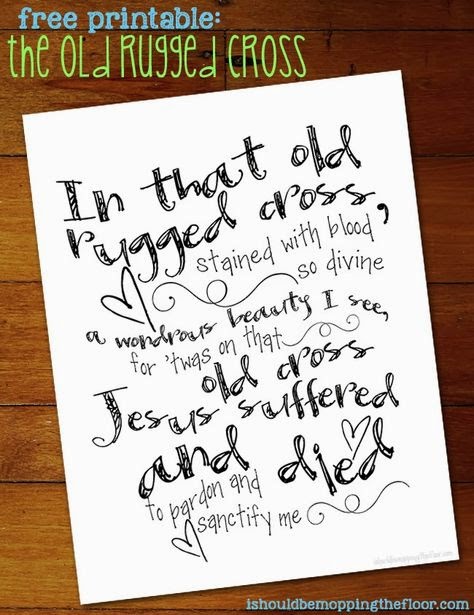 free printable:
the old rugged cross
In that old
rugged cross,
stained with blood
so divine
a wondrous beauty I see,
for 'twas on that
old cross
Jesus suffered
and died
to pardon and
sanctify me
ishouldbemoppingthefloor.com
ishouldbemoppingthefloor.com